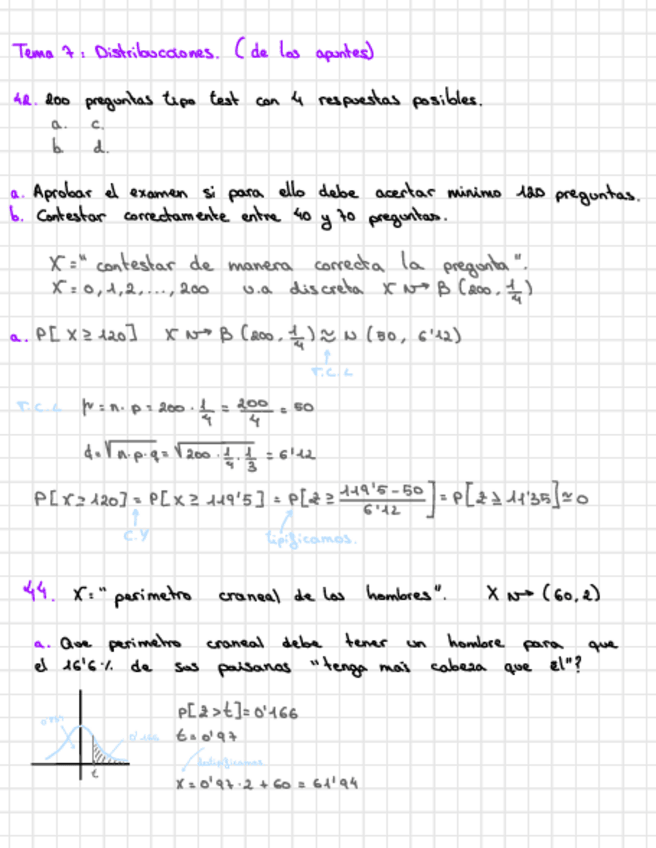 Tema 7: Distribucciones. (de los apuntes)
42. 200 preguntas tipo test con 4 respuestas posibles.
a. c.
b d.
a. Aprobar el examen si para ello debe acertar minimo 120 preguntas.
b. Contestar correctamente entre 40 y 70 preguntas.
X = "contestar de manera correcta la pregunta".
X = 0, 1, 2, ..., 200 v.a discreta X ~→ B (200, 1/4)
a. P[X ≥ 120] X ~→ B (200, 1/4) ≈ N (50, 6'12)
T.C.L
T.C.L μ = n · p = 200 · 1/4 = 200/4 = 50
d = √n·p·q = √200 · 1/4 · 1/3 = 6'12
P[X ≥ 120] = P[X ≥ 119'5] = P[Z ≥ 119'5 - 50 / 6'12] = P[Z ≥ 11'35] ≈ 0
C.Y tipificamos.
44. X = "perimetro craneal de los hombres". X ~→ (60, 2)
a. Que perimetro craneal debe tener un hombre para que
el 16'6% de sus paisanos "tenga mas cabeza que el"?
P[Z > t] = 0'166
0'166 t = 0'97
t
X = 0'97 · 2 + 60 = 61'94